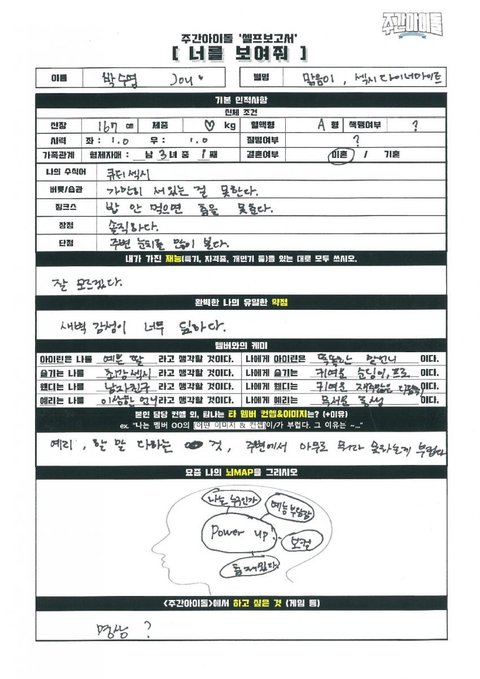 주간아이돌
주간아이돌 '셀프보고서'
[ 너를 보여줘 ]
이름 박수영 Joy 별명 맑음이, 섹시다이너마이트
기본 인적사항
신체 조건
신장 167 cm 체중 ♡ kg 혈액형 A 형 색맹여부 ?
시력 좌 : 1.0 우 : 1.0 질병여부 ?
가족관계 형제자매 : 남 3녀 중 1째 결혼여부 미혼 / 기혼
나의 수식어 큐티섹시
버릇/습관 가만히 서있는 걸 못한다.
징크스 밥 안 먹으면 춤을 못춘다.
장점 솔직하다.
단점 주변 눈치를 많이 본다.
내가 가진 재능(특기, 자격증, 개인기 등)을 있는 대로 모두 쓰시오.
잘 모르겠다.
완벽한 나의 유일한 약점
새벽 감성이 너무 심하다.
멤버와의 케미
아이린은 나를 예쁜 딸 라고 생각할 것이다. 나에게 아이린은 똑똑한 맏언니 이다.
슬기는 나를 조강섹시 라고 생각할 것이다. 나에게 슬기는 귀여운 순딩이, 프로 이다.
웬디는 나를 남자친구 라고 생각할 것이다. 나에게 웬디는 귀여운 재주많은 이다.
예리는 나를 이상한 언니 라고 생각할 것이다. 나에게 예리는 무서운 동생 이다.
본인 담당 컨셉 외, 탐나는 타 멤버 컨셉&이미지는? (+이유)
ex. "나는 멤버 OO의 (어떤 이미지 & 컨셉)이/가 부럽다. 그 이유는 ~..."
예리, 할 말 다하는 것, 주변에서 아무도 뭐라 못하는게 부럽다
요즘 나의 뇌MAP을 그리시오
나는 누구인가
예능 부담감
Power up!
보컬
듬
<주간아이돌>에서 하고 싶은 것 (게임 등)
명상 ?